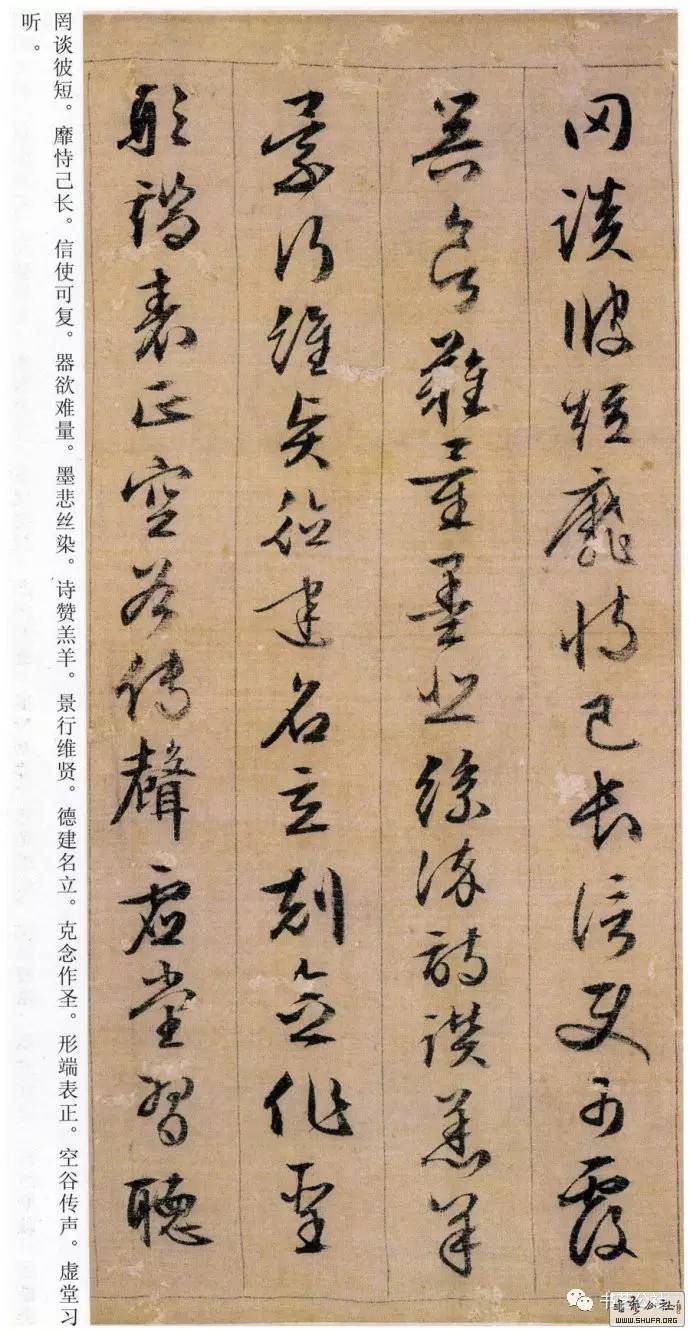 罔談彼短靡恃己長信使可覆
器欲難量墨悲絲染詩讚羔羊
景行維賢德建名立剋念作聖
形端表正空谷傳聲虛堂習聽
罔谈彼短。靡恃己长。信使可复。器欲难量。墨悲丝染。诗赞羔羊。景行维贤。德建名立。克念作圣。形端表正。空谷传声。虚堂习
听。
书艺公社
WWW.SHUFA.ORG